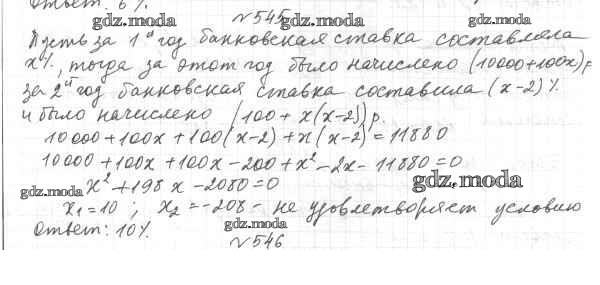 Ответ: 6%.
gdz.moda №545 gdz.moda
Пусть за 1й год банковская ставка составляла
x%, тогда за этот год было начислено (10000+100x)р
за 2й год банковская ставка составила (x-2)%
и было начислено (100+x(x-2))р.
10000+100x+100(x-2)+x(x-2)=11880
10000+100x+100x-200+x²-2x-11880=0
gdz.moda x²+198x-2080=0 gdz.moda
x₁=10; x₂=-208- не удовлетворяет условию
Ответ: 10%. gdz.moda
№546